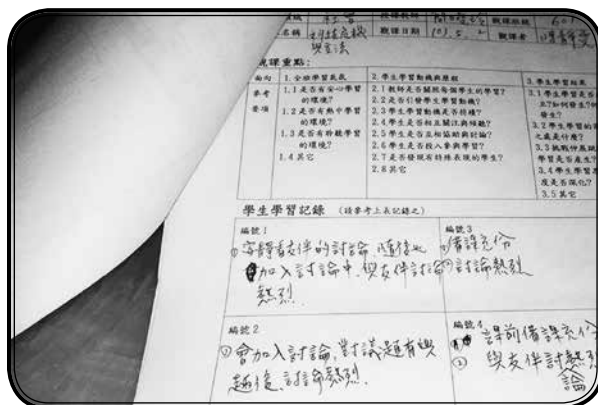 社會
觀課班級
601
名稱
與憲法
觀課日期
103.5.2
觀課者
觀課重點:
面向
1. 全班學習氣氛
2. 學生學習動機與歷程
3. 學生學習結果
參考
要項
1.1 是否有安心學習
的環境?
1.2 是否有熱中學習
的環境?
1.3 是否有聆聽學習
的環境?
1.4 其它
2.1 教師是否關照每個學生的學習?
2.2 是否引發學生學習動機?
2.3 學生學習動機是否持續?
2.4 學生是否相互關注與傾聽?
2.5 學生是否互相協助與討論?
2.6 學生是否投入參與學習?
2.7 是否發現有特殊表現的學生?
2.8 其它
3.1 學生學習是否
立?如何發生?
發生?
3.2 學生學習的
之處是什麼?
3.3 挑戰伸展跳
學習是否產生?
3.4 學生學習
度是否深化?
3.5 其
學生學習記錄 (請參考上表記錄之)
編號1
①字靜看友伴的討論,隨後也
加入討論中,與友伴討論
熱烈.
編號3
①備課充份
②討論熱烈
編號2
①會加入討論,對議題有興
趣後,討論熱烈.
編號4
課前備課充份
② 與友伴討論熱烈